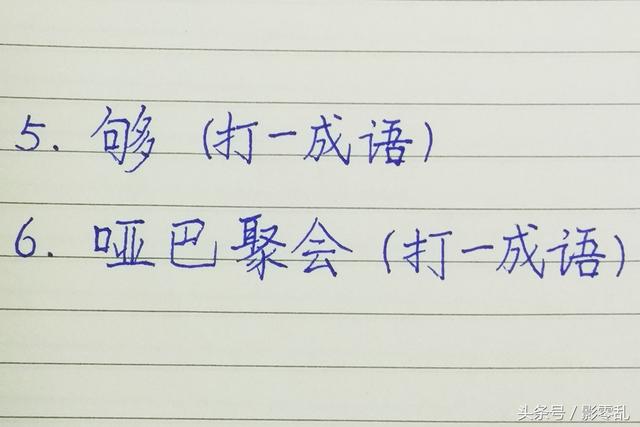 5. 够 (打一成语)
6. 哑巴聚会 (打一成语)
头条号 / 影零乱